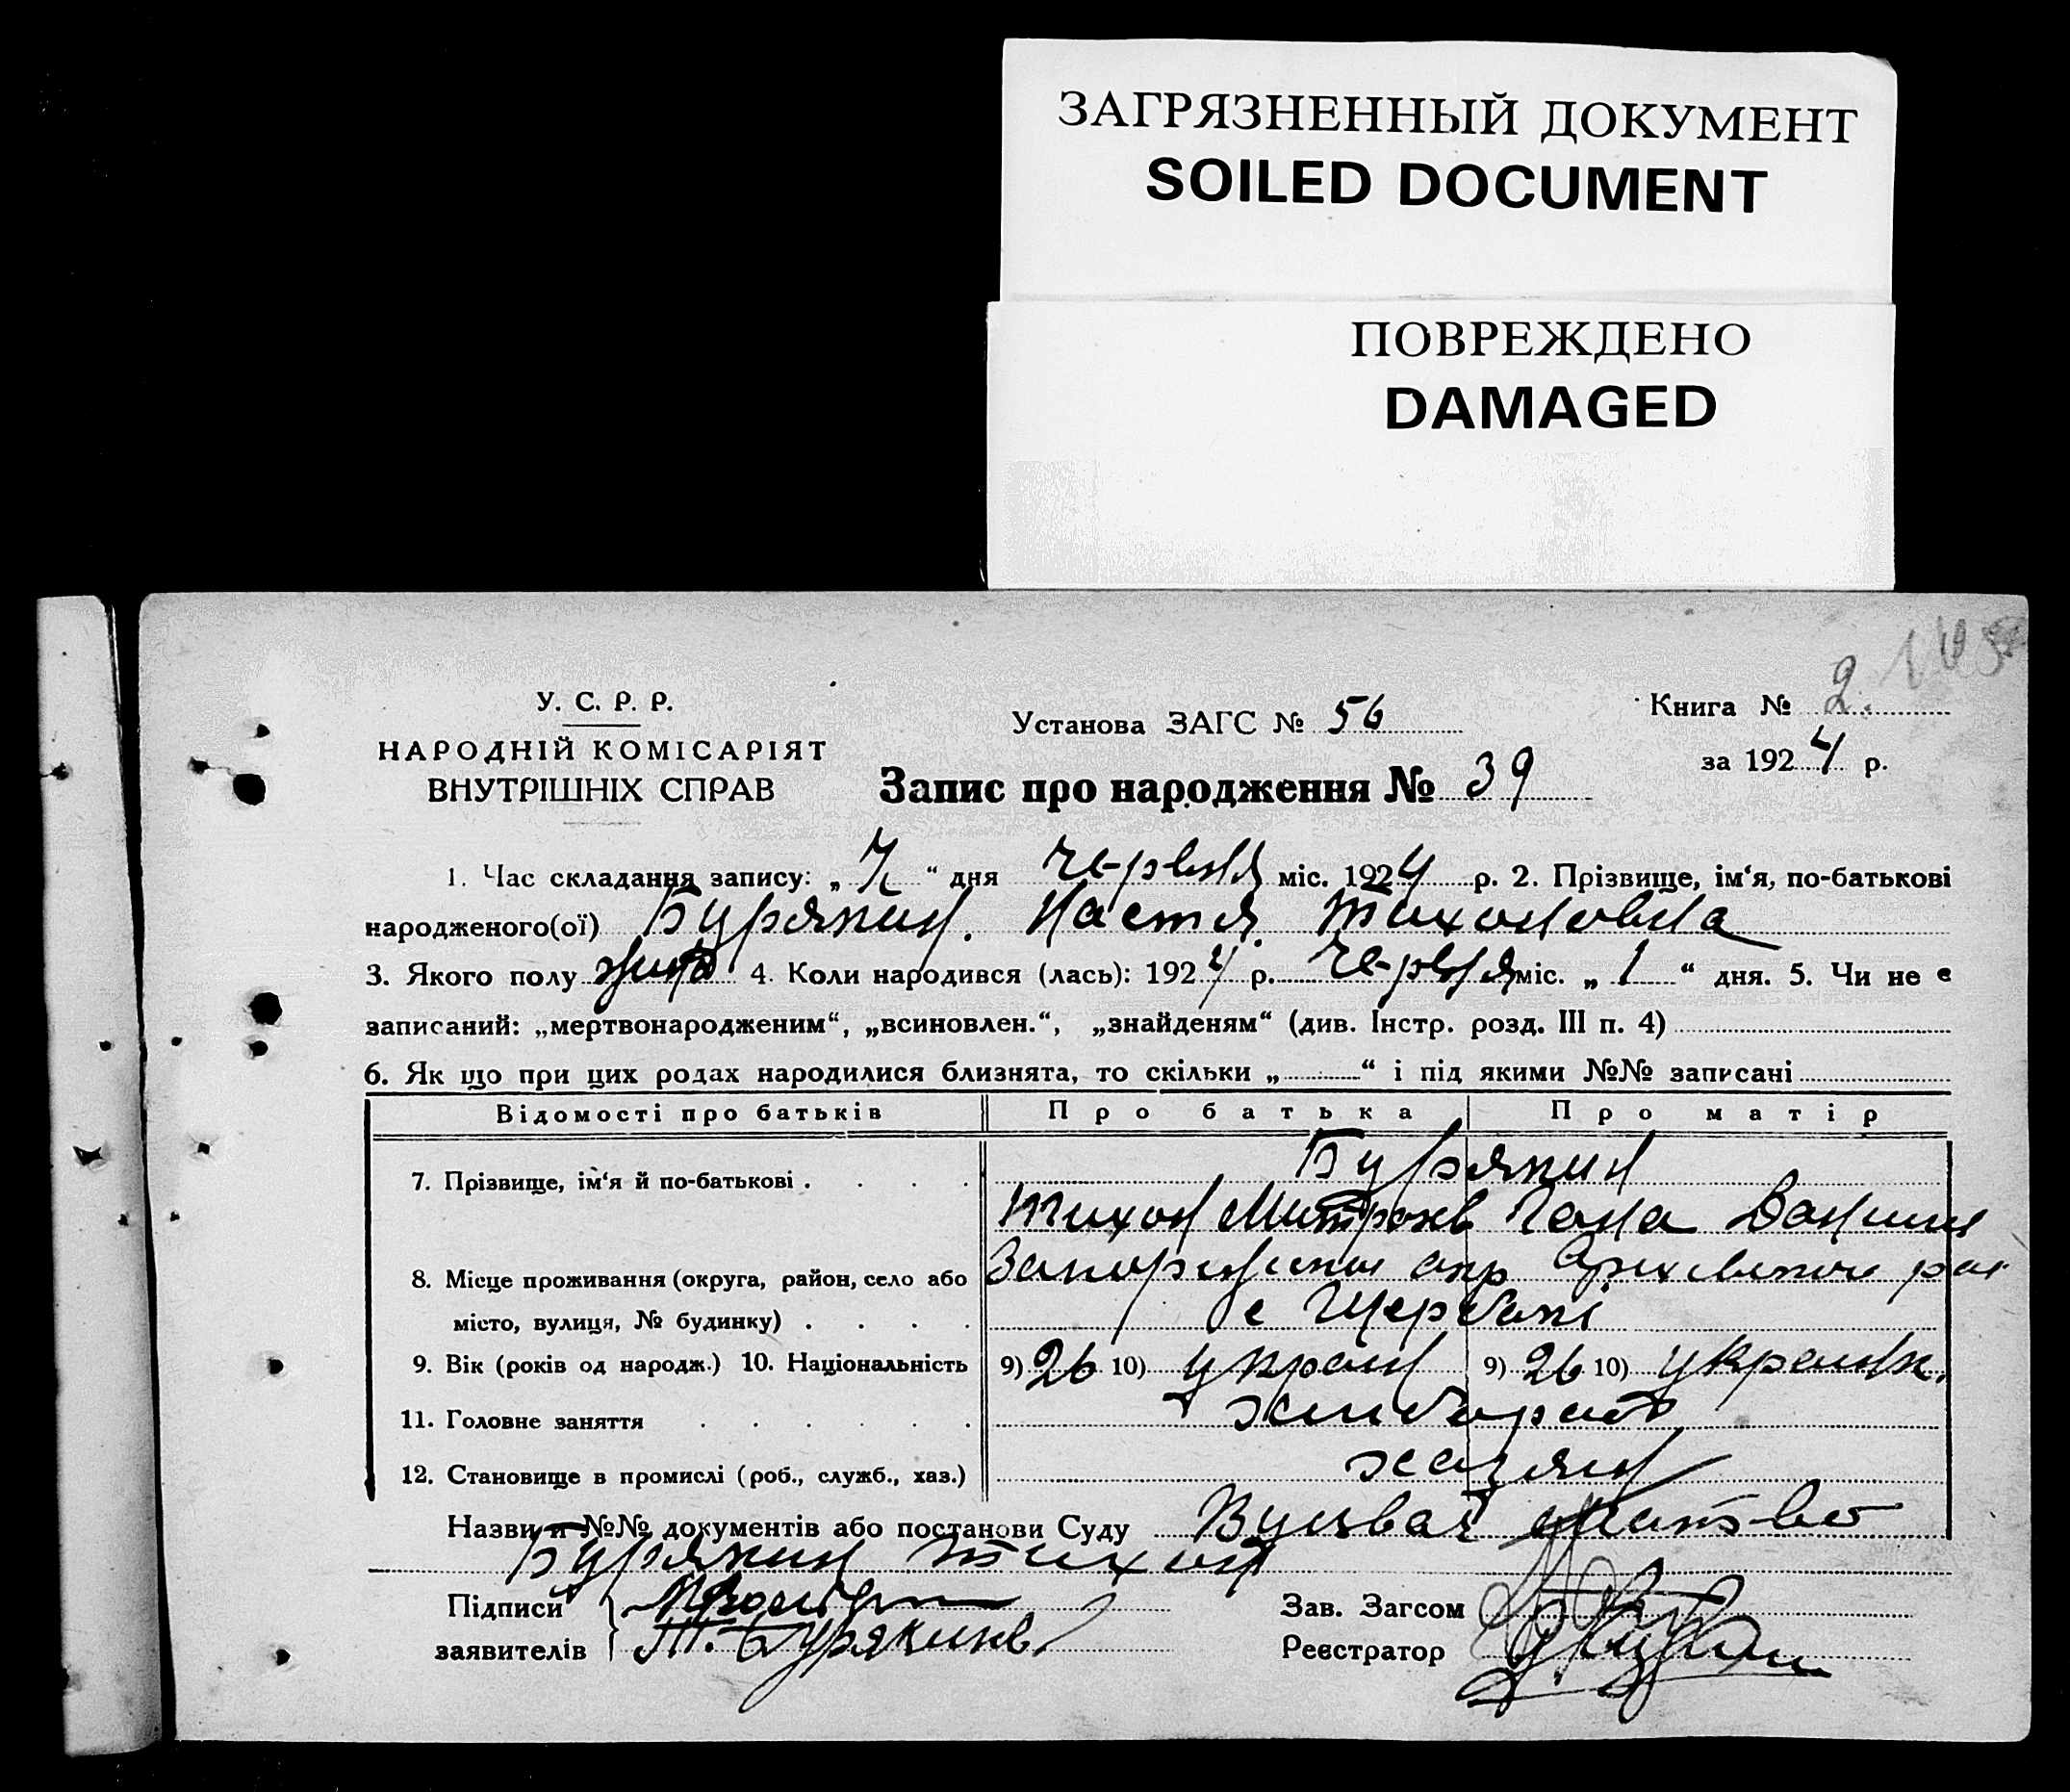 ЗАГРЯЗНЕННЫЙ ДОКУМЕНТ
SOILED DOCUMENT
ПОВРЕЖДЕНО
DAMAGED
У. С. Р. Р.
НАРОДНІЙ КОМІСАРІЯТ
ВНУТРІШНІХ СПРАВ
Установа ЗАГС № 56
Книга № 2.
за 1924 р.
Запис про народження № 39
1. Час складання запису: „ “ дня червня міс. 1924 р. 2. Прізвище, ім‘я, по-батькові
народженого(ої) Бурякин. Настя Тихоновна
3. Якого полу 4. Коли народився (лась): 1924 р. червня міс. „ 1 “ дня. 5. Чи не є
записаний: „мертвонародженим“, „всиновлен.“, „знайденям“ (див. Інстр. розд. III п. 4)
6. Як що при цих родах народилися близнята, то скільки „ “ і під якими №№ записані
Відомості про батьків Про батька Про матір
Бурякин
7. Прізвище, ім‘я й по-батькові .  .  .  .
Тихон Митроха
8. Місце проживання (округа, район, село або окр
місто, вулиця, № будинку) .  .  .  . с Щербакі
9. Вік (років од народж.) 10. Національність 9) 26 10) украин 9) 26 10) украинк.
11. Головне заняття .  .  .  .  . хлибороб
12. Становище в промислі (роб., служб., хаз.) хазяин
Назви й №№ документів або постанови Суду
Бурякин Тихон
Підписи
Зав. Загсом
заявителів Т. Бурякинъ
Реєстратор